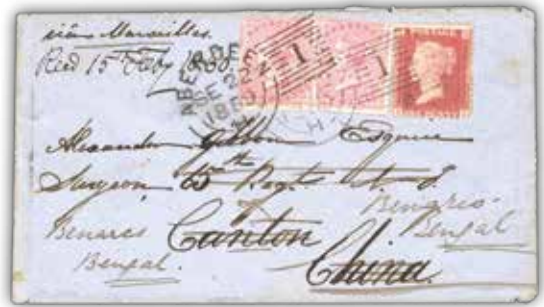 viâ Marseilles.
Recd 15th Feby 1860
ABERDEEN
SE 22
1859
1
1
POSTAGE
Alexander Gibbon Esquire
Surgeon 65th Regt N. I.
Benares
Bengal.
Canton
Benares
Bengal
China.